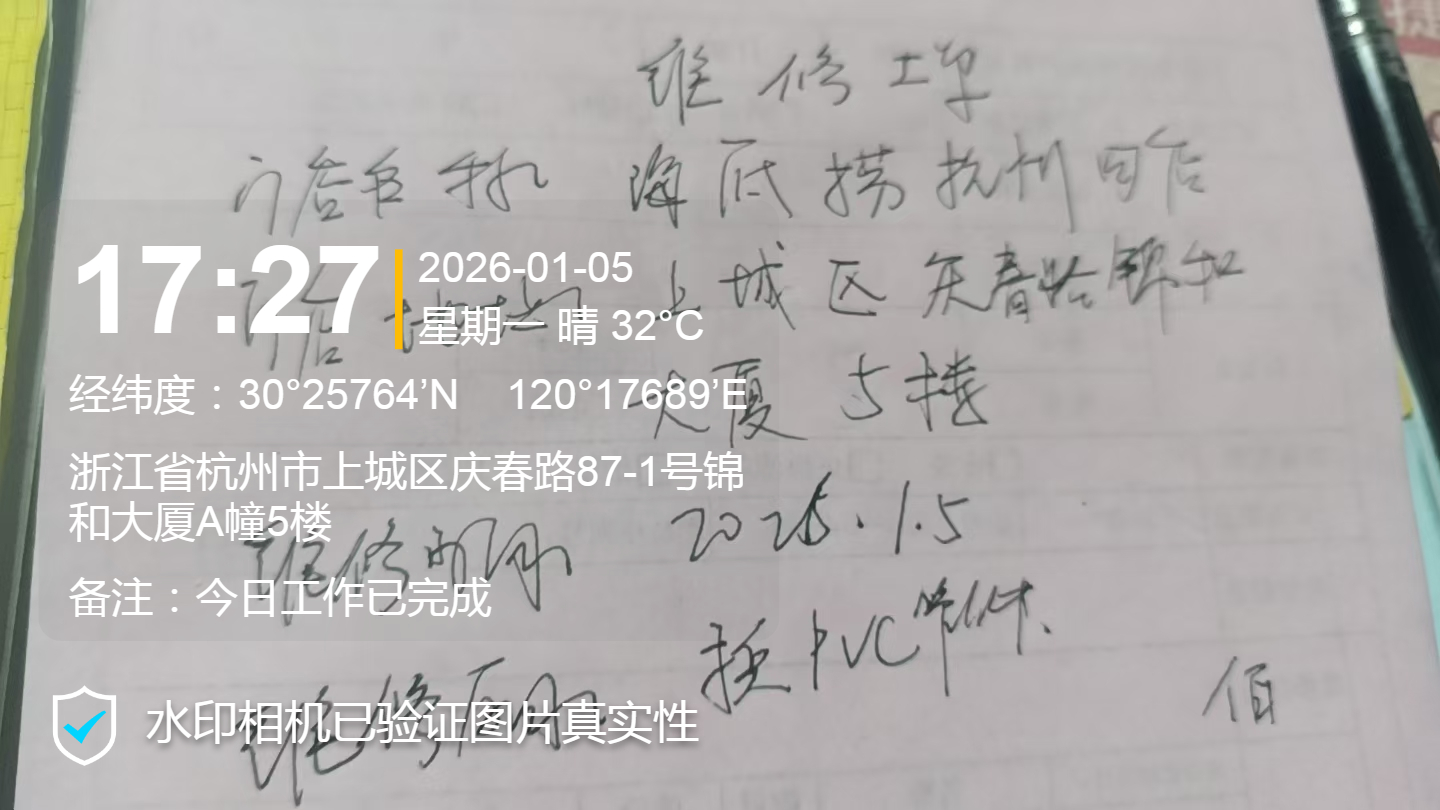 维修工单
门店名称 海底捞杭州门店
门店地址 上城区庆春路锦和
大厦5楼
维修时间 2026.1.5
换PVC管件.
17:27
2026-01-05
星期一 晴 32°C
经纬度：30°25764’N 120°17689’E
浙江省杭州市上城区庆春路87-1号锦
和大厦A幢5楼
备注：今日工作已完成
水印相机已验证图片真实性